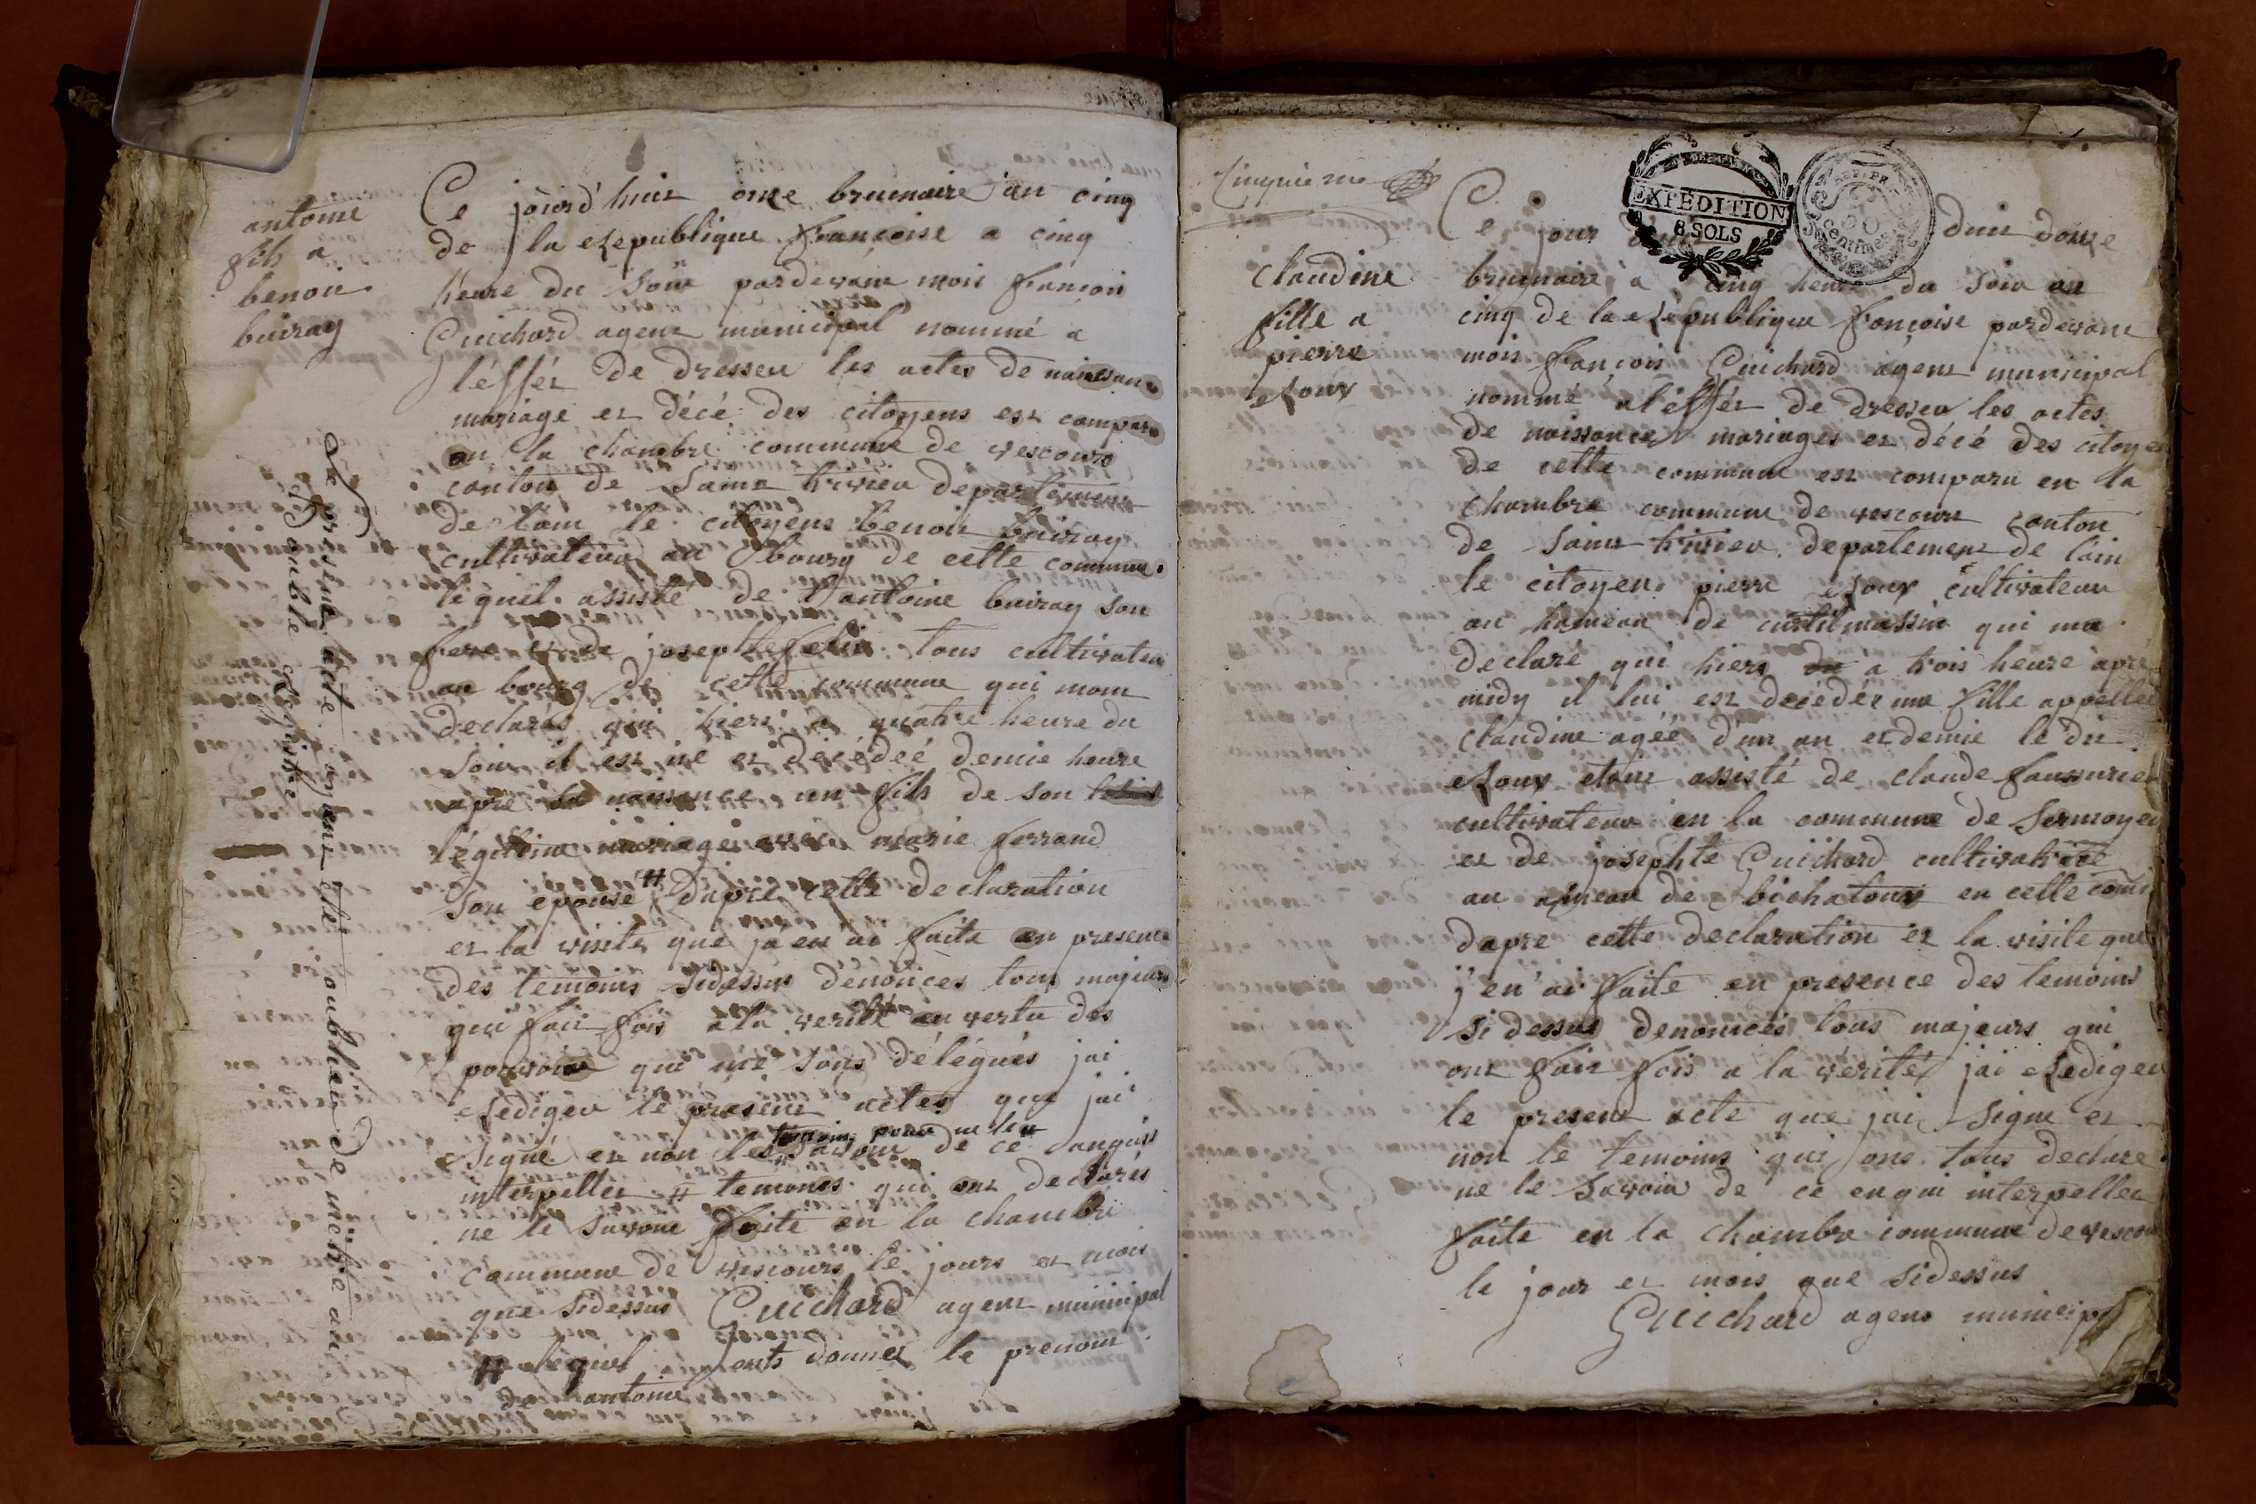 antoine
fils a
benoit
buiray
Ce jourd'huit onze brumaire an cinq
de la republique françoise a cinq
heure du soir pardevant mois françois
Guichard agent municipal nommé a
l'éffét de dresser les actes de naissance
mariage et décé des citoyens est comparu
en la chambre commune de vescours
canton de saint trivier departement
de l'ain le citoyens benoit buiray
cultivateur au bourg de cette commune
lequel assisté de antoine buiray son
frere et de josephte tous cultivateur
au bourg de cette commune qui mont
declarés qui hiers a quatre heure du
soir il est né et decédéé demie heure
apre sa naissance un fils de son
légitime mariage avec marie ferrand
son epouse # dapre cette declaration
et la visite que ja en ai faite en presence
des temoins sidessus dénoncés tous majeurs
qui fait fois a la verité en vertu des
pouvoir que me sont délégués jai
redigeu le present actes que jai
temoins pour ne le
signé et non les savoir de ce anquis
interpeller # temoins qui ont declarés
ne le savoir faite en la chambre
commune de vescours le jours et mois
que sidessus Guichard agent municipal
# lequel ont donner le prenom
de antoine
Le present acte ayant eté oublier de metre au
double registre
Cinquieme
Claudine
fille a
pierre
roux
EXPÉDITION
8 SOLS
centimes
Ce jour duit douze
brumaire a cinq heure du soir an
cinq de la republique françoise pardevant
mois françois Guichard agent municipal
nommé a l'éffét de dresser les actes
de naissance mariages et décé des citoyen
de cette commune est comparu en la
chambre commune de vescours canton
de saint trivier departement de l'ain
le citoyen pierre roux cultivateur
au hameau de curtilmassin qui ma
declaré qui hiers a trois heure apre
midy il lui est decéder une fille appellée
claudine agéé d'un an et demie le dit
roux etoit assisté de claude faussurier
cultivateur en la commune de sermoyer
et de josephte Guichard cultivatrice
au ameau de bichatoux en cette com
dapre cette declaration et la visite que
j'en ai faite en presence des temoins
si dessus denoncés tous majeurs qui
ont fait fois a la vérité jai redigeu
le present acte que jai signe et
non le temoins qui ont tous declare
ne le savoir de ce enqui interpellée
faite en la chambre commune de vescour
le jour et mois que sidessus
Guichard agent municipal